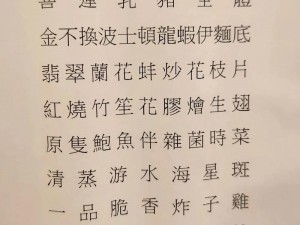 乳豬全體
金不換波士頓龍蝦伊麵底
翡翠蘭花蚌炒花枝片
紅燒竹笙花膠燴生翅
原隻鮑魚伴雜菌時菜
清蒸游水海星斑
一品脆香炸子雞